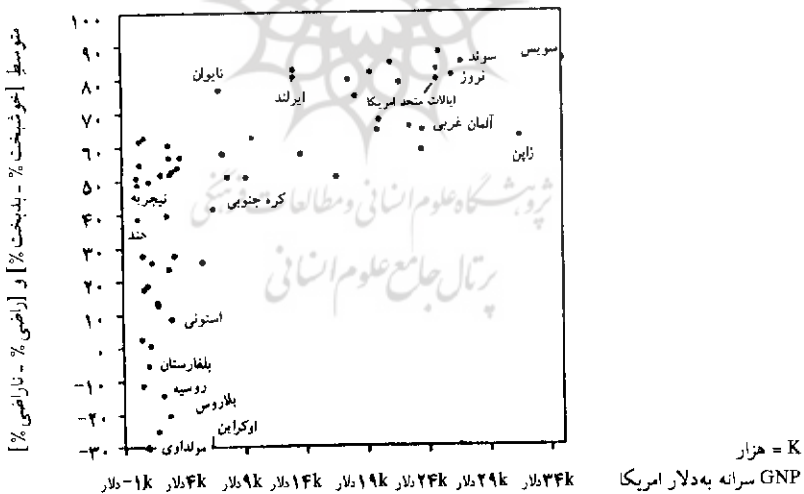 متوسط [خوشبخت % - بدبخت %] و [راضی % - ناراضی %]
۱۰۰
۹۰
۸۰
۷۰
۶۰
۵۰
۴۰
۳۰
۲۰
۱۰
۰
-۱۰
-۲۰
-۳۰
سویس
سوئد
نروژ
ایالات متحد امریکا
تایوان
ایرلند
آلمان غربی
ژاپن
نیجریه
کره جنوبی
هند
استونی
بلغارستان
روسیه
بلاروس
اوکراین
مولداوی
پژوهشگاه علوم انسانی و مطالعات فرهنگی
پرتال جامع علوم انسانی
-۱k دلار ۴k دلار ۹k دلار ۱۴k دلار ۱۹k دلار ۲۴k دلار ۲۹k دلار ۳۴k دلار
K = هزار
GNP سرانه به‌دلار امریکا